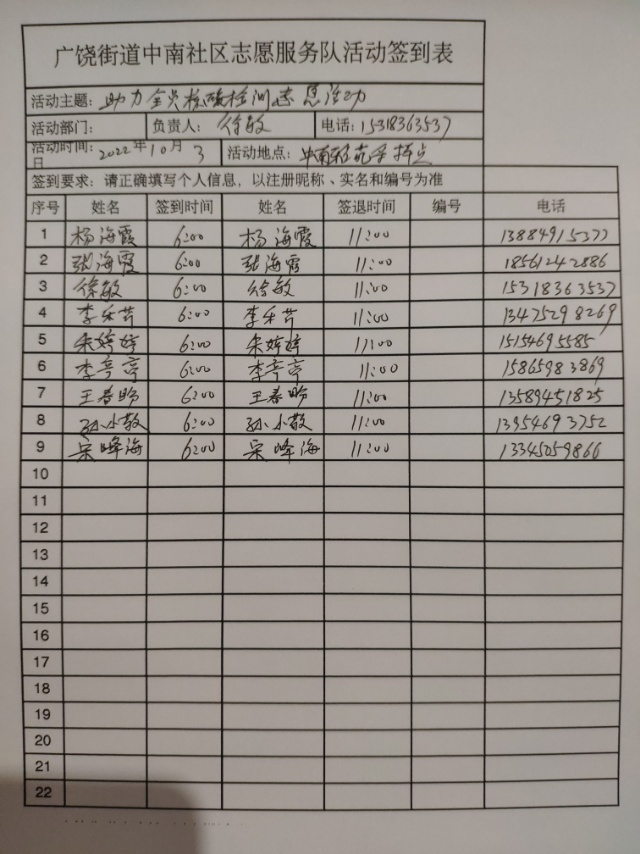 广饶街道中南社区志愿服务队活动签到表
活动主题：助力全员核酸检测志愿活动
活动部门： 负责人：徐敏 电话：15318363537
活动时间：2022年10月3日 活动地点：中南
签到要求：请正确填写个人信息，以注册昵称、实名和编号为准
序号 姓名 签到时间 姓名 签退时间 编号 电话
1 杨海霞 6:00 杨海霞 11:00 13884915377
2 张海霞 6:00 张海霞 11:00 18561242886
3 徐敏 6:00 徐敏 11:00 15318363537
4 李乐芹 6:00 李乐芹 11:00 13475298269
5 朱婷婷 6:00 朱婷婷 11:00 15154695585
6 李亭亭 6:00 李亭亭 11:00 15865983869
7 王春盼 6:00 王春盼 11:00 13589451825
8 孙小敏 6:00 孙小敏 11:00 13954693752
9 宋峰海 6:00 宋峰海 11:00 13345059866
10
11
12
13
14
15
16
17
18
19
20
21
22